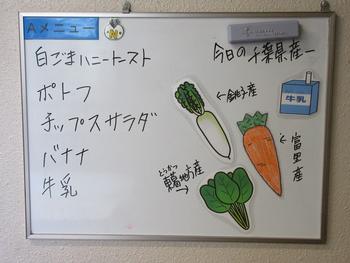 Aメニュー
白ごまハニートースト
ポトフ
チップスサラダ
バナナ
牛乳
今日の千葉県産ー
←銚子産
牛乳
←富里産
とうかつ
東葛地方産
→